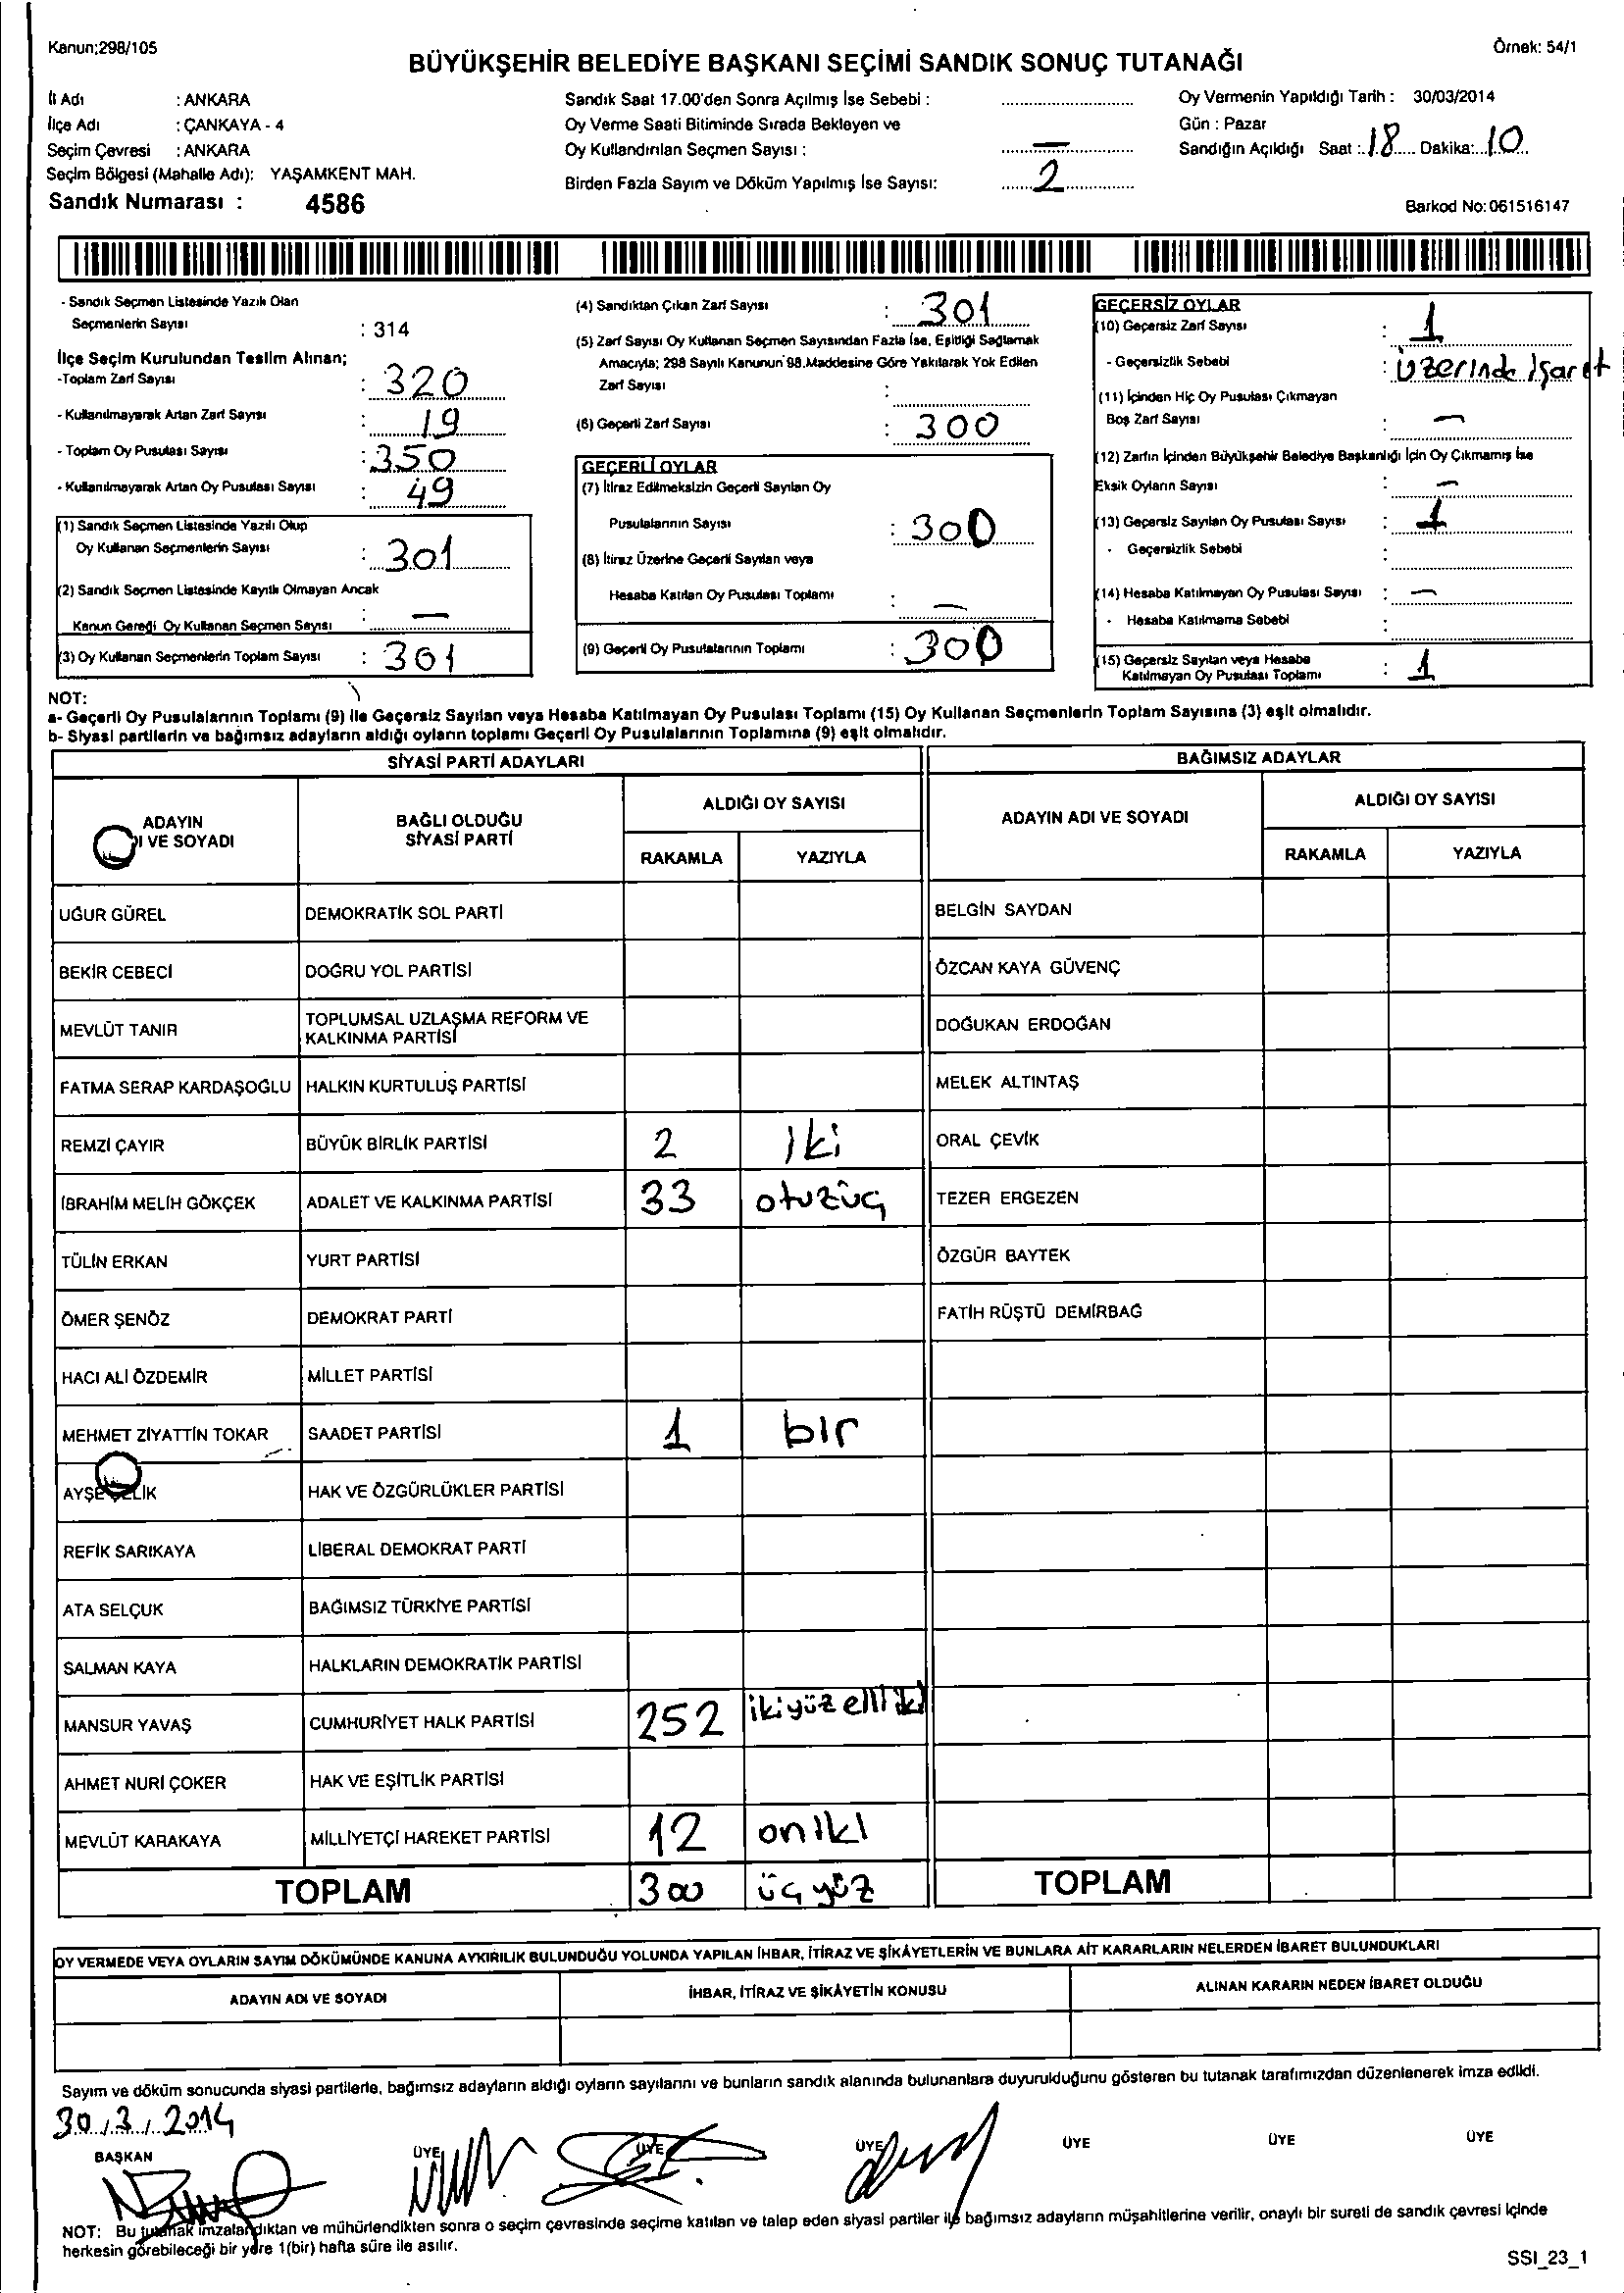 Kanun;298/105
Örnek: 54/1
BÜYÜKŞEHİR BELEDİYE BAŞKANI SEÇİMİ SANDIK SONUÇ TUTANAĞI
İl Adı : ANKARA
İlçe Adı : ÇANKAYA - 4
Seçim Çevresi : ANKARA
Seçim Bölgesi (Mahalle Adı): YAŞAMKENT MAH.
Sandık Numarası : 4586
Sandık Saat 17.00'den Sonra Açılmış İse Sebebi :
Oy Verme Saati Bitiminde Sırada Bekleyen ve
Oy Kullandırılan Seçmen Sayısı : —
Birden Fazla Sayım ve Döküm Yapılmış İse Sayısı: 2
Oy Vermenin Yapıldığı Tarih : 30/03/2014
Gün : Pazar
Sandığın Açıldığı Saat : 18 Dakika: 10
Barkod No: 061516147
- Sandık Seçmen Listesinde Yazılı Olan
Seçmenlerin Sayısı : 314
İlçe Seçim Kurulundan Teslim Alınan;
-Toplam Zarf Sayısı : 320
- Kullanılmayarak Artan Zarf Sayısı : 19
- Toplam Oy Pusulası Sayısı : 350
- Kullanılmayarak Artan Oy Pusulası Sayısı : 49
(1) Sandık Seçmen Listesinde Yazılı Olup
Oy Kullanan Seçmenlerin Sayısı : 301
(2) Sandık Seçmen Listesinde Kayıtlı Olmayan Ancak
Kanun Gereği Oy Kullanan Seçmen Sayısı : —
(3) Oy Kullanan Seçmenlerin Toplam Sayısı : 301
(4) Sandıktan Çıkan Zarf Sayısı : 301
(5) Zarf Sayısı Oy Kullanan Seçmen Sayısından Fazla İse, Eşitliği Sağlamak
Amacıyla; 298 Sayılı Kanunun 98.Maddesine Göre Yakılarak Yok Edilen
Zarf Sayısı :
(6) Geçerli Zarf Sayısı : 300
GEÇERLİ OYLAR
(7) İtiraz Edilmeksizin Geçerli Sayılan Oy
Pusulalarının Sayısı : 300
(8) İtiraz Üzerine Geçerli Sayılan veya
Hesaba Katılan Oy Pusulası Toplamı : —
(9) Geçerli Oy Pusulalarının Toplamı : 300
GEÇERSİZ OYLAR
(10) Geçersiz Zarf Sayısı : 1
- Geçersizlik Sebebi : üzerinde işaret
(11) İçinden Hiç Oy Pusulası Çıkmayan
Boş Zarf Sayısı : —
(12) Zarfın İçinden Büyükşehir Belediye Başkanlığı İçin Oy Çıkmamış İse
Eksik Oyların Sayısı : —
(13) Geçersiz Sayılan Oy Pusulası Sayısı : 1
- Geçersizlik Sebebi :
(14) Hesaba Katılmayan Oy Pusulası Sayısı : —
- Hesaba Katılmama Sebebi :
(15) Geçersiz Sayılan veya Hesaba
Katılmayan Oy Pusulası Toplamı : 1
NOT:
a- Geçerli Oy Pusulalarının Toplamı (9) ile Geçersiz Sayılan veya Hesaba Katılmayan Oy Pusulası Toplamı (15) Oy Kullanan Seçmenlerin Toplam Sayısına (3) eşit olmalıdır.
b- Siyasi partilerin ve bağımsız adayların aldığı oyların toplamı Geçerli Oy Pusulalarının Toplamına (9) eşit olmalıdır.
SİYASİ PARTİ ADAYLARI BAĞIMSIZ ADAYLAR
ADAYIN
I VE SOYADI
BAĞLI OLDUĞU
SİYASİ PARTİ
ALDIĞI OY SAYISI
RAKAMLA YAZIYLA
ADAYIN ADI VE SOYADI
ALDIĞI OY SAYISI
RAKAMLA YAZIYLA
UĞUR GÜREL DEMOKRATİK SOL PARTİ BELGİN SAYDAN
BEKİR CEBECİ DOĞRU YOL PARTİSİ ÖZCAN KAYA GÜVENÇ
MEVLÜT TANIR TOPLUMSAL UZLAŞMA REFORM VE
KALKINMA PARTİSİ DOĞUKAN ERDOĞAN
FATMA SERAP KARDAŞOĞLU HALKIN KURTULUŞ PARTİSİ MELEK ALTINTAŞ
REMZİ ÇAYIR BÜYÜK BİRLİK PARTİSİ 2 iki ORAL ÇEVİK
İBRAHİM MELİH GÖKÇEK ADALET VE KALKINMA PARTİSİ 33 otuzüç TEZER ERGEZEN
TÜLİN ERKAN YURT PARTİSİ ÖZGÜR BAYTEK
ÖMER ŞENÖZ DEMOKRAT PARTİ FATİH RÜŞTÜ DEMİRBAĞ
HACI ALİ ÖZDEMİR MİLLET PARTİSİ
MEHMET ZİYATTİN TOKAR SAADET PARTİSİ 1 bir
AYŞE ÇELİK HAK VE ÖZGÜRLÜKLER PARTİSİ
REFİK SARIKAYA LİBERAL DEMOKRAT PARTİ
ATA SELÇUK BAĞIMSIZ TÜRKİYE PARTİSİ
SALMAN KAYA HALKLARIN DEMOKRATİK PARTİSİ
MANSUR YAVAŞ CUMHURİYET HALK PARTİSİ 252 ikiyüz elli iki
AHMET NURİ ÇOKER HAK VE EŞİTLİK PARTİSİ
MEVLÜT KARAKAYA MİLLİYETÇİ HAREKET PARTİSİ 12 oniki
TOPLAM 300 üçyüz TOPLAM
OY VERMEDE VEYA OYLARIN SAYIM DÖKÜMÜNDE KANUNA AYKIRILIK BULUNDUĞU YOLUNDA YAPILAN İHBAR, İTİRAZ VE ŞİKÂYETLERİN VE BUNLARA AİT KARARLARIN NELERDEN İBARET BULUNDUKLARI
ADAYIN ADI VE SOYADI İHBAR, İTİRAZ VE ŞİKÂYETİN KONUSU ALINAN KARARIN NEDEN İBARET OLDUĞU
Sayım ve döküm sonucunda siyasi partilerle, bağımsız adayların aldığı oyların sayılarını ve bunların sandık alanında bulunanlara duyurulduğunu gösteren bu tutanak tarafımızdan düzenlenerek imza edildi.
30/3/2014
BAŞKAN ÜYE ÜYE ÜYE ÜYE ÜYE ÜYE
NOT: Bu tutanak imzalandıktan ve mühürlendikten sonra o seçim çevresinde seçime katılan ve talep eden siyasi partiler ile bağımsız adayların müşahitlerine verilir, onaylı bir sureti de sandık çevresi içinde
herkesin görebileceği bir yere 1(bir) hafta süre ile asılır.
SSI_23_1